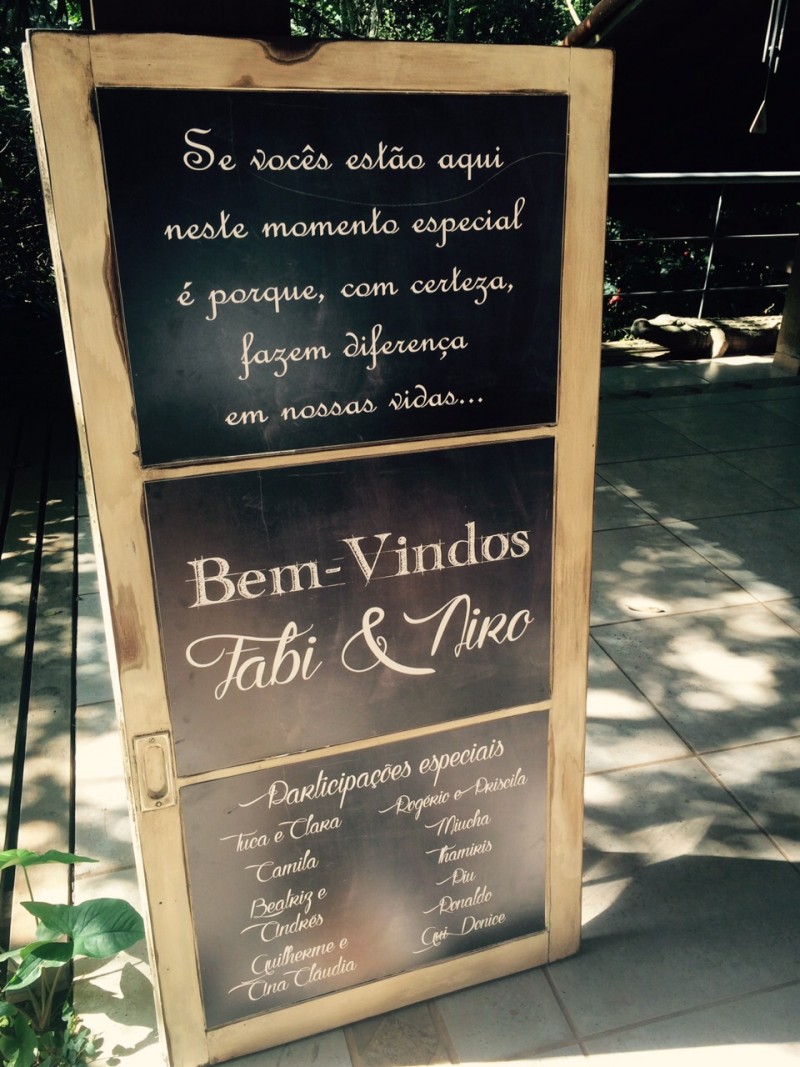 Se vocês estão aqui
neste momento especial
é porque, com certeza,
fazem diferença
em nossas vidas...
Bem-Vindos
Fabi & Niro
Participações especiais
Tuca e Clara
Camila
Beatriz e
Andrés
Guilherme e
Ana Cláudia
Rogério e Priscila
Miucha
Thamiris
Piu
Ronaldo
Gui Donice